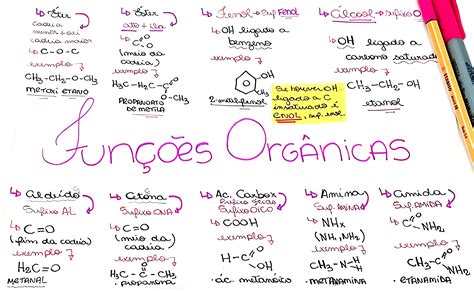 ↳ Éter
cadeia
menor + oxi +
cadeia maior
↳ C-O-C
exemplo
CH₃-CH₂-O-CH₃
metoxietano
↳ Éster
ato + ila
↳ C=O
O
(meio da
cadeia)
exemplo
H₃C-H₂C-C=O
O-CH₃
PROPANOATO
DE METILA
↳ Fenol → sup FENOL
↳ OH ligado a
benzeno
exemplo
OH
CH₃
2-metilfenol
Se houver OH
ligado a C
insaturado é
ENOL, suf. enol.
↳ Álcool → sufixo O
↳ OH ligado a
carbono saturado
exemplo
CH₃-CH₂-OH
etanol
FUNÇÕES ORGÂNICAS
↳ Aldeído
Sufixo AL
↳ C=O
(fim da cadeia)
exemplo
H₂C=O
METANAL
↳ Cetona
Sufixo ONA
↳ C=O
(meio da
cadeia)
exemplo
H₃C-C-CH₃
O
• propanona
↳ Ác. Carbox
Sufixo OICO
↳ COOH
exemplo
H-C=O
OH
• ác. metanóico
↳ Amina
Suf. AMINA
↳ NHx
(NH, NH₂)
exemplo
CH₃-N-H
H
• METANAMINA
↳ Amida
Suf. AMIDA
↳ C=O
NH₂
exemplo
CH₃-C=O
NH₂
• ETANAMIDA